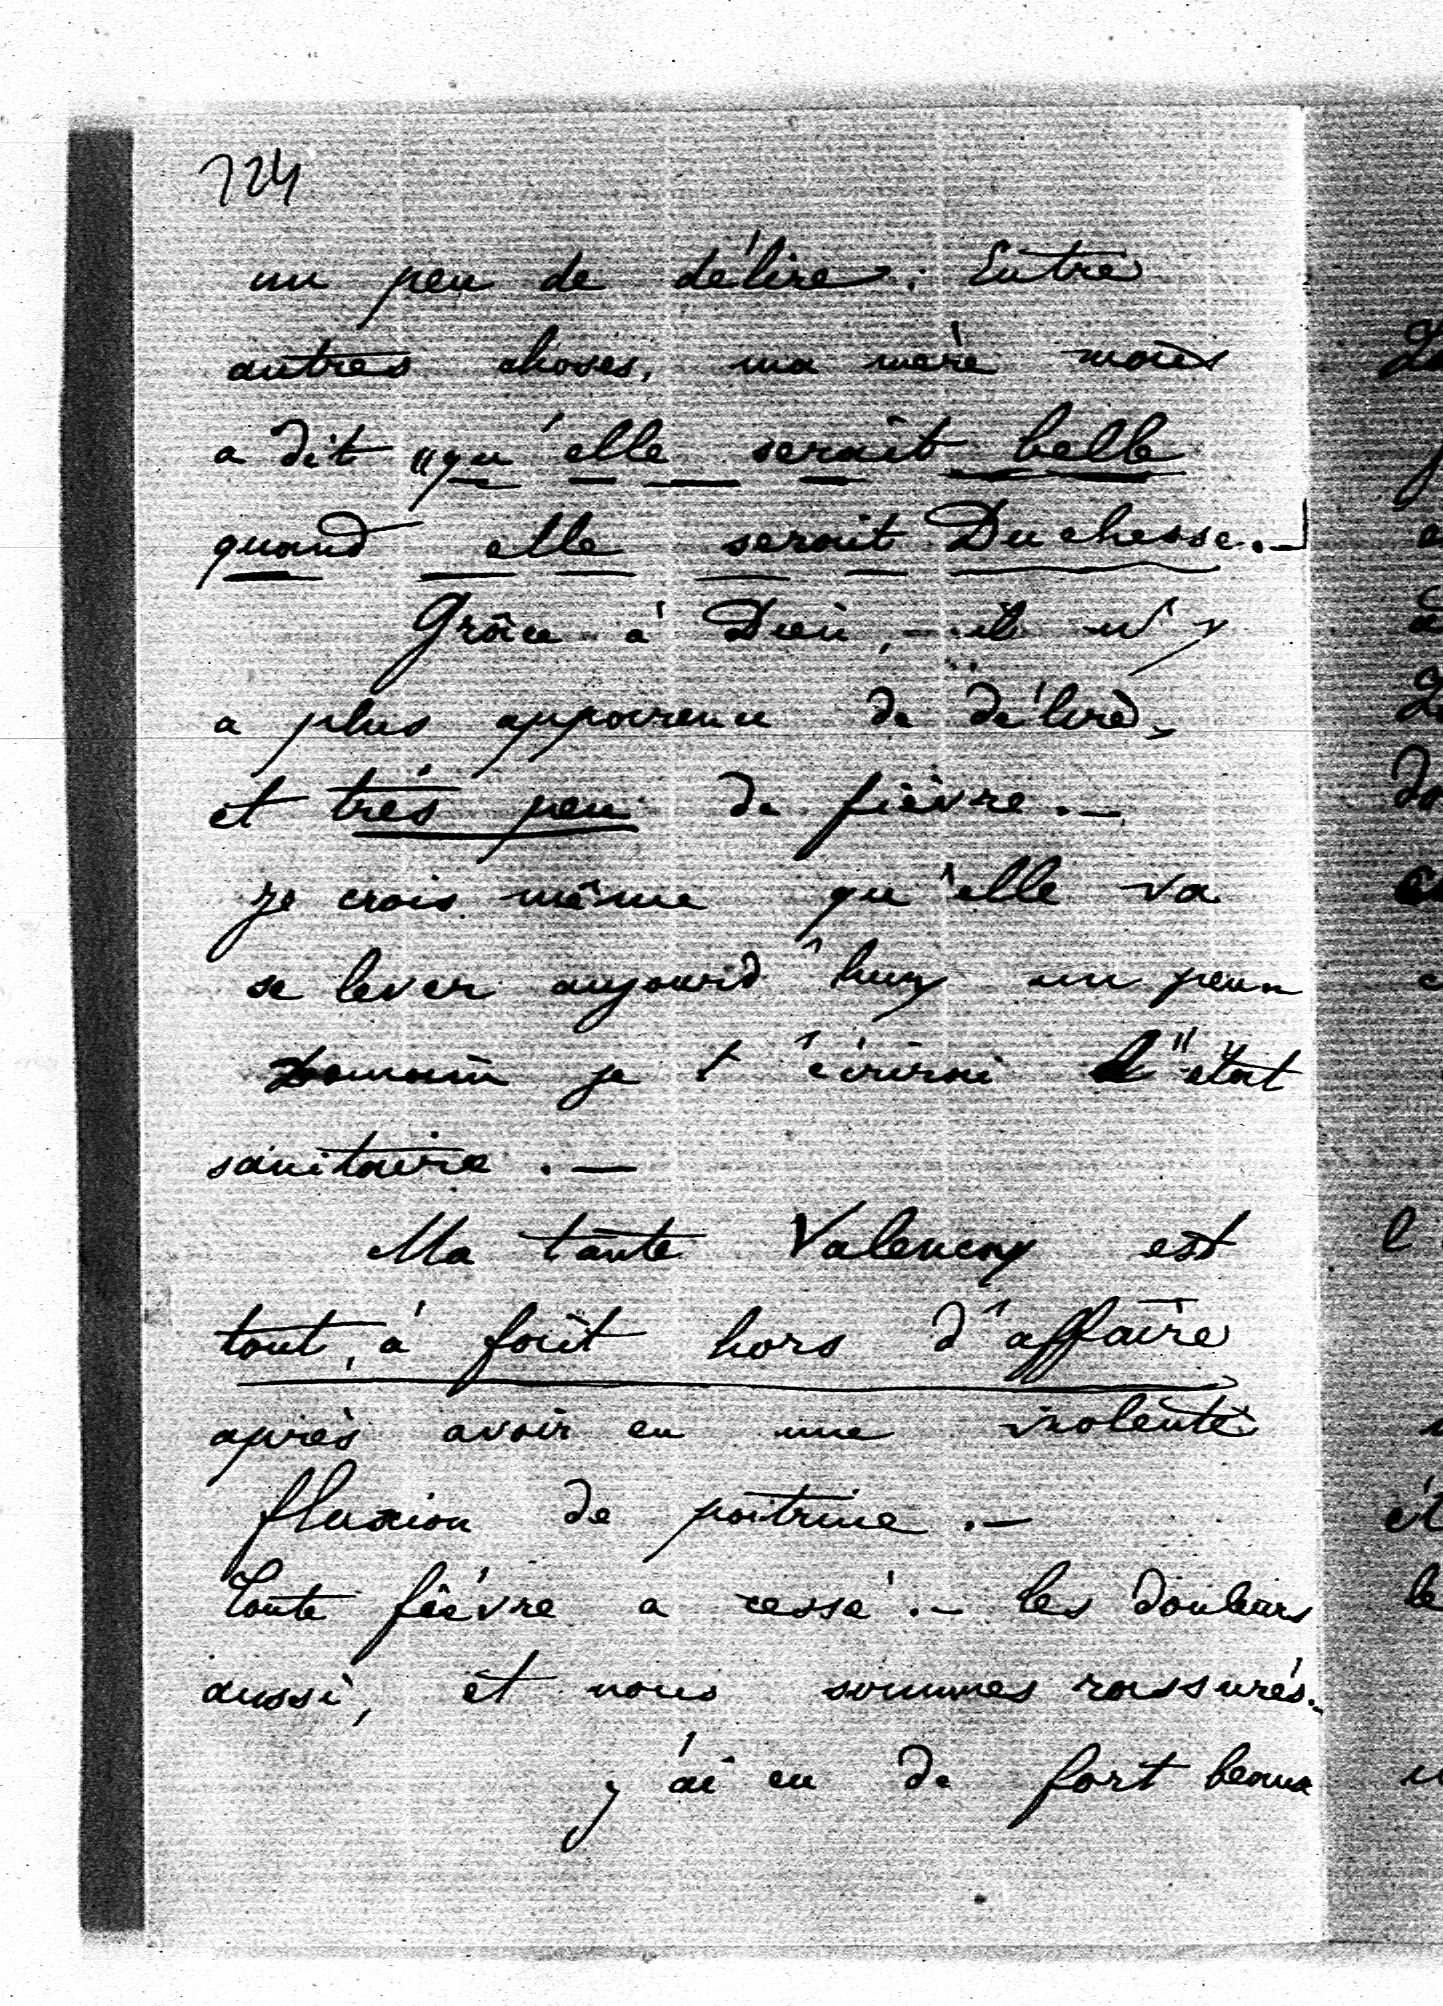 724
un peu de délire. Entre
autres choses, ma mère
a dit "qu'elle serait belle
quand elle serait Duchesse.—
Grâce à Dieu, — il n'y
a plus apparence de délire,
et très peu de fièvre.—
je crois même qu'elle va
se lever aujourd'huy un peu
Demain je t'écrirai l'état
sanitaire.—
Ma tante Valencay est
tout à fait hors d'affaire
après avoir eu une violente
fluxion de poitrine.—
Toute fièvre a cessé.— les douleurs
aussi, et nous sommes rassurés.
j'ai eu de fort beaux